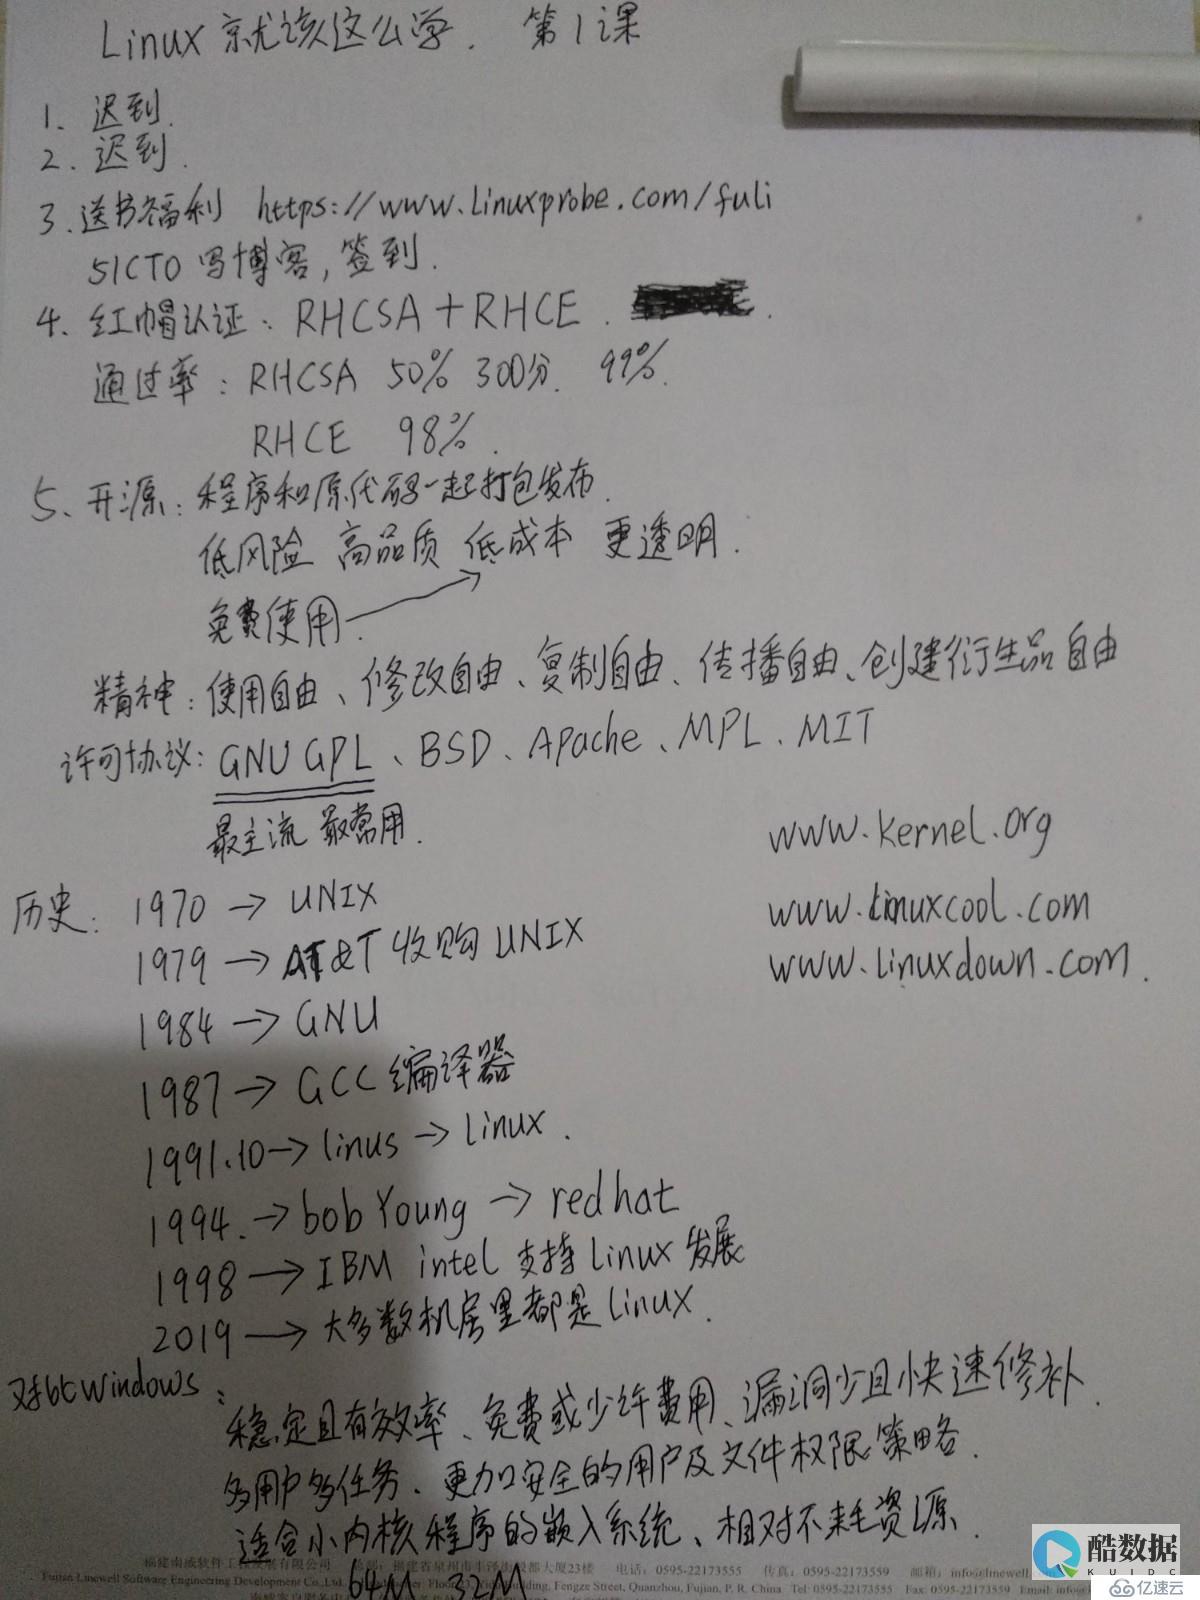 Linux 就该这么学. 第1课
1、迟到.
2、迟到.
3、送书福利 https://www.linuxprobe.com/fuli
51CTO 写博客, 签到.
4、红帽认证: RHCSA + RHCE.
通过率: RHCSA 50% 300分. 99%.
RHCE 98%.
5、开源: 程序和原代码一起打包发布.
低风险 高品质 低成本 更透明.
免费使用.
精神: 使用自由、修改自由、复制自由、传播自由、创建衍生品自由
许可协议: GNU GPL、BSD、Apache、MPL、MIT
最主流 最常用.
www.kernel.org
www.linuxcool.com
www.linuxdown.com.
历史: 1970 → UNIX
1979 → AT&T 收购 UNIX
1984 → GNU
1987 → GCC 编译器
1991.10 → linus → linux.
1994. → bob Young → red hat
1998 → IBM intel 支持 linux 发展
2019 → 大多数机房里都是 linux.
对比 windows:
稳定且有效率、免费或少许费用、漏洞少且快速修补.
多用户多任务、更加安全的用户及文件权限策略.
适合小内核程序的嵌入系统、相对不耗资源.
64M 32M
福建南威软件工程发展有限公司 总部: 福建省泉州市丰泽街 大厦23楼 电话: 0595-22173555 传真: 0595-22173559 邮箱: info@linewell
Fujian Linewell Software Engineering Development Co., Ltd. Floor 23, Building, Fengze Street, Quanzhou, Fujian, P. R. China Tel: 0595-22173555 Fax: 0595-22173559 Email: info@
酷数据
KUIDC
亿速云